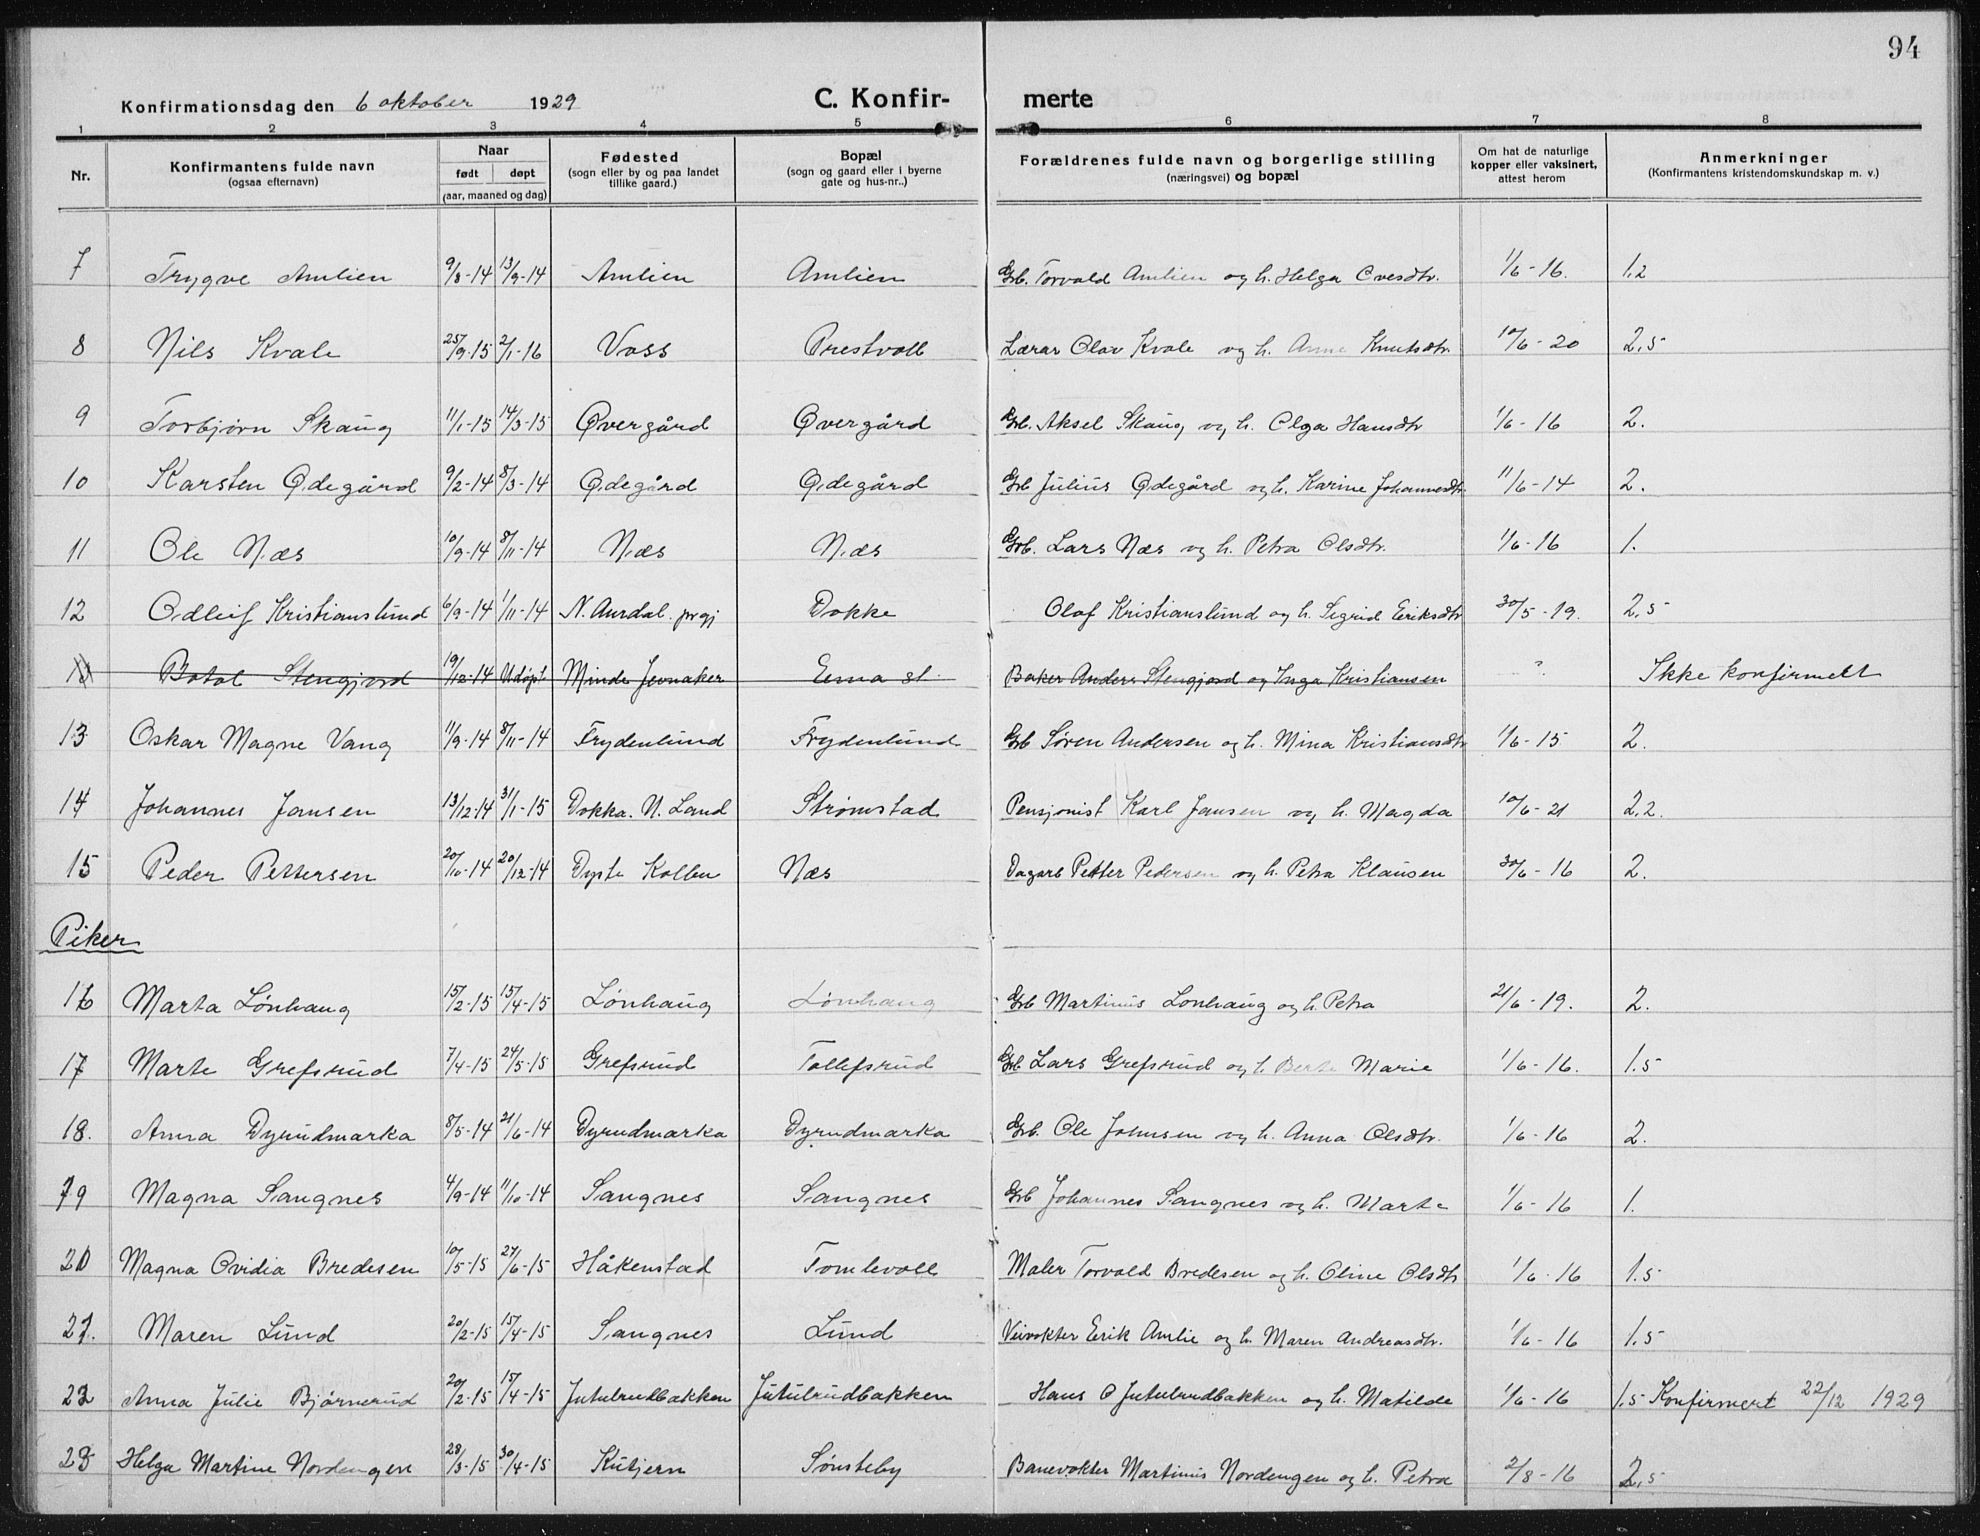 94
Konfirmationsdag den 6 oktober 1929 C. Konfir- merte
1 2 3 4 5 6 7 8
Nr. Konfirmantens fulde navn (ogsaa efternavn) Naar født døpt (aar, maaned og dag) Fødested (sogn eller by og paa landet tillike gaard.) Bopæl (sogn og gaard eller i byerne gate og hus-nr..) Forældrenes fulde navn og borgerlige stilling (næringsvei) og bopæl Om hat de naturlige kopper eller vaksinert, attest herom Anmerkninger (Konfirmantens kristendomskundskap m. v.)
7 Trygve Amlien 9/8-14 13/9-14 Amlien Amlien Grb. Torvald Amlien og h. Helga Ovesdtr. 1/6-16. 1,2
8 Nils Kvale 25/9-15 2/1-16 Voss Prestvoll Lærar Olav Kvale og h. Anne Knutsdtr. 10/6-20 2,5
9 Torbjørn Skaug 11/1-15 14/3-15 Øvergård Øvergård Grb. Aksel Skaug og h. Olga Hansdtr 1/6-16 2.
10 Karsten Ødegård 9/2-14 8/3-14 Ødegård Ødegård Grb Julius Ødegård og h. Karine Johannesdtr. 11/6-14 2.
11 Ole Næs 10/9-14 8/11-14 Næs Næs Grb. Lars Næs og h. Petra Olsdtr. 1/6-16 1.
12 Odleif Kristianslund 6/9-14 1/11-14 N. Aurdal prgj Dokke Olaf Kristianslund og h. Sigrid Eriksdtr 30/5-19. 2,5
Botol Stengjord 19/12-14 Udøpt Minde Jevnaker Eina st. Baker Anders Stengjord og Inga Kristiansen " Ikke konfirmert
13 Oskar Magne Vang 11/9-14 8/11-14 Frydenlund Frydenlund Grb Søren Andersen og h. Mina Kristiansdtr 1/6-15 2.
14 Johannes Jansen 13/12-14 31/1-15 Dokka. N. Land Strømstad Pensjonist Karl Jansen og h. Magda 10/6-21 2,2.
15 Peder Pettersen 20/10-14 20/12-14 Dyste Kolbu Næs Dagarb Petter Pedersen og h. Petra Klausen 30/6-16 2.
Piker
16 Marta Lønhaug 15/2-15 15/4-15 Lønhaug Lønhaug Grb Martinus Lønhaug og h. Petra 21/6-19. 2.
17 Marte Grefsrud 7/4-15 24/5-15 Grefsrud Tollefsrud Grb Lars Grefsrud og h. Berte Marie 1/6-16. 1.5
18. Anna Dyrudmarka 8/5-14 21/6-14 Dyrudmarka Dyrudmarka Grb. Ole Johnsen og h. Anna Olsdtr. 1/6-16 2.
19 Magna Sangnes 4/9-14 11/10-14 Sangnes Sangnes Grb Johannes Sangnes og h. Marte 1/6-16 1.
20 Magna Ovidia Bredesen 10/5-15 27/6-15 Håkenstad Tomlevoll Maler Torvald Bredesen og h. Oline Olsdtr 1/6-16 1.5
21. Maren Lund 20/2-15 15/4-15 Sangnes Lund Veivokter Erik Amlie og h. Maren Andreasdtr. 1/6-16 1.5
22 Anna Julie Bjørnerud 20/2-15 15/4-15 Jutulrudbakken Jutulrudbakken Hans O Jutulrudbakken og h. Matilde 1/6-16 1.5 Konfirmert 22/12 1929
23 Helga Martine Nordengen 28/3-15 30/4-15 Kutjern Sønsteby Banevokter Martinus Nordengen og h. Petra 2/8-16 2,5